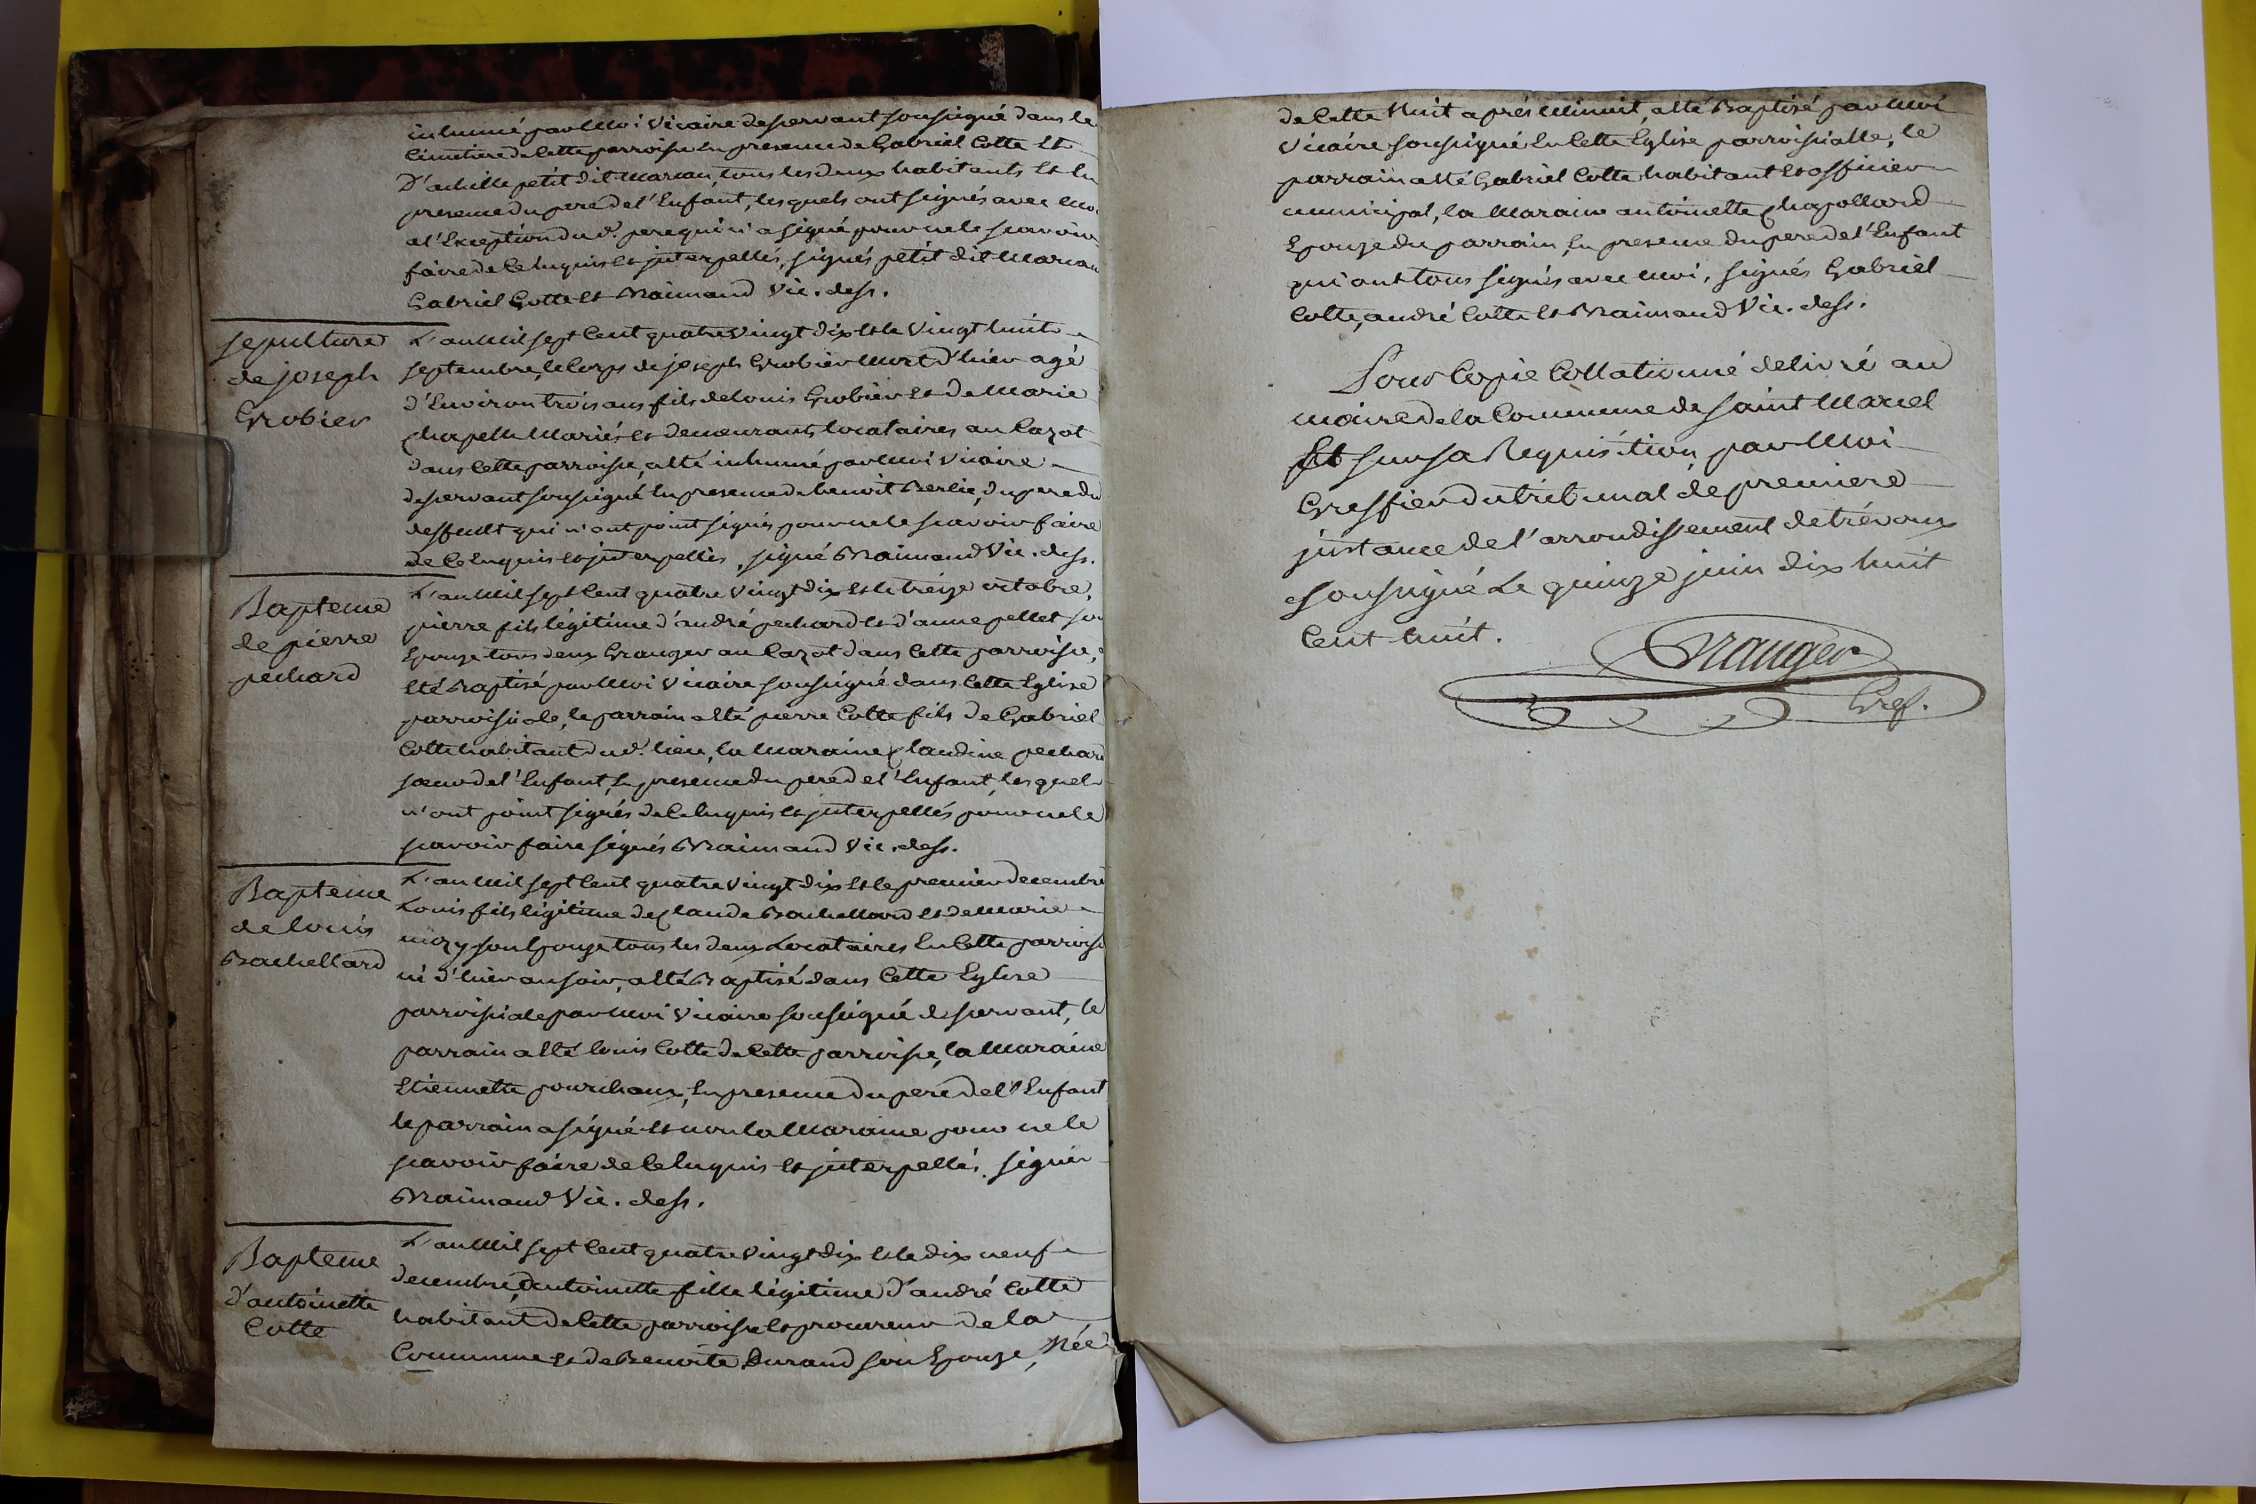 inhumé par Moi Vicaire desservant soussigné dans le
Cimetiere de Cette parroisse En presence de Gabriel Cotte Et
D'achille petit dit Marian, tous les deux habitants Et En
presence du pere de l'Enfant, lesquels ont signés avec moi
a l'Exception du d. pere qui n'a signé pour ne le sçavoir
faire de Ce Enquis Et interpellés, signés petit dit Marian
Gabriel Cotte Et Braimand Vic. dess.
Sepulture
de joseph
Grobier
L'an Mil sept Cent quatre vingt dix Et le Vingt huit
septembre, le Corps de joseph Grobier Mort d'hier agé
d'Environ trois ans fils de louis Grobier Et de Marie
Chapelle Mariés Et demeurants locataires au Cazot
dans Cette parroisse, a Eté inhumé par Moi Vicaire
desservant soussigné En presence de benoit Berlie, du pere du
deffunt qui n'ont point signés pour ne le sçavoir faire
de Ce Enquis Et interpellés, signé Braimand Vic. dess.
Bapteme
de pierre
pechard
L'an Mil sept Cent quatre Vingt dix Et le treize octobre,
pierre fils légitime d'andré pechard Et d'anne pellet son
Epouze tous deux Granger au Cazot dans Cette parroisse, a
Eté Baptisé par Moi Vicaire soussigné dans Cette Eglise
parroissiale, le parrain a Eté pierre Cotte fils de Gabriel
Cotte habitant du d. lieu, la Maraine Claudine pechard
sœur de l'Enfant, En presence du pere de l'Enfant, lesquels
n'ont point signés de Ce Enquis Et interpellés pour ne le
sçavoir faire signés Braimand Vic. dess.
Bapteme
de louis
Bachellard
L'an Mil sept Cent quatre Vingt dix Et le premier decembre
Louis fils légitime de Claude Bachellard Et de Marie
mozy son Epouze tous les deux Locataires En Cette parroisse
né d'hier au soir, a Eté Baptisé dans Cette Eglise
parroissiale par Moi Vicaire soussigné desservant, le
parrain a Eté louis Cotte de Cette parroisse, la Maraine
Etiennette pourchoux, En presence du pere de l'Enfant
le parrain a signé Et non la Maraine pour ne le
sçavoir faire de Ce Enquis Et interpellés. signés
Braimand Vic. dess.
Bapteme
d'antoinette
Cotte
L'an Mil sept Cent quatre Vingt dix Et le dix neuf
decembre, antoinette fille légitime d'andré Cotte
habitant de Cette parroisse Et procureur de la
Commune Et de Benoite Durand son Epouze, Née
de Cette Nuit après Minuit, a Eté Baptisé par Moi
Vicaire soussigné En Cette Eglise parroissialle, le
parrain a Eté Gabriel Cotte habitant Et officier
municipal, la Maraine antoinette Chapollard
Epouze du parrain, En presence du pere de l'Enfant
qui ont tous signés avec Moi, signés Gabriel
Cotte, andré Cotte Et Braimand Vic. dess.
Pour Copie Collationné delivré au
maire de la Commune de Saint Marcel
Et sur sa Requisition, par Moi
Greffier du tribunal de premiere
justance de l'arrondissement de trévoux
soussigné Le quinze juin dix huit
Cent huit.
Gref.